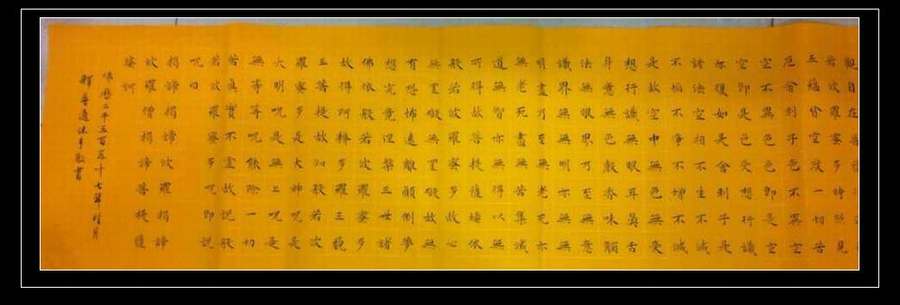 觀自在菩
若波羅蜜多時照見
五蘊皆空度一切苦
厄舍利子色不異空
空不異色色即是空
空即是色受想行識
亦復如是舍利子是
諸法空相不生不滅
不垢不淨不增不減
是故空中無色無受
想行識無眼耳鼻舌
身意無色聲香味觸
法無眼界乃至無意
識界無無明亦無無
明盡乃至無老死亦
無老死盡無苦集滅
道無智亦無得以無
所得故菩提薩埵依
般若波羅蜜多故心
無罣礙無罣礙故無
有恐怖遠離顛倒夢
想究竟涅槃三世諸
佛依般若波羅蜜多
故得阿耨多羅三藐
三菩提故知般若波
羅蜜多是大神呪是
大明呪是無上呪是
無等等呪能除一切
苦真實不虛故說般
若波羅蜜多呪即說
呪曰
揭諦揭諦波羅揭諦
波羅僧揭諦菩提薩
婆訶
佛曆二千五百五十七年月
釋普沐手敬書